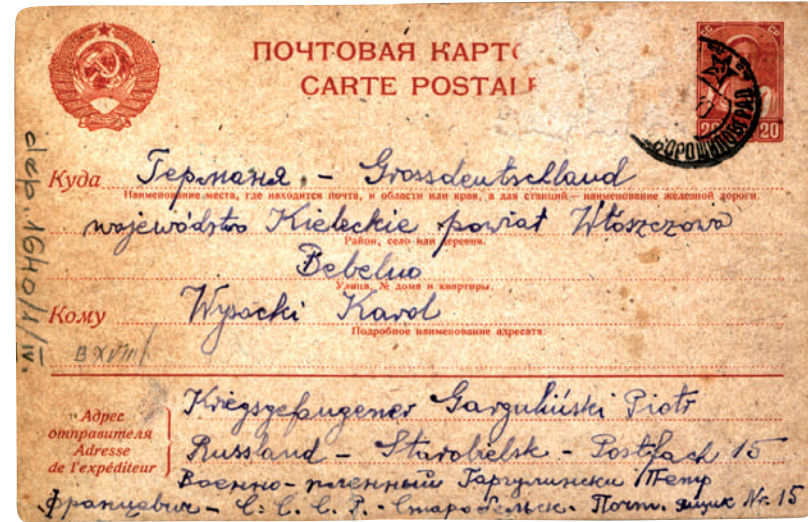 ПОЧТОВАЯ КАРТО
CARTE POSTALE
20 20
ВОРОШИЛОВГРАД
Куда Германия - Grossdeutschland
Наименование места, где находится почта, и области или края, а для станций — наименование железной дороги.
województwo Kieleckie powiat Włoszczowa
Район, село или деревня.
Bebelno
Улица, № дома и квартиры.
Кому Wysocki Karol
Подробное наименование адресата.
B XVIII/
dep. 1640/1/IV.
Адрес отправителя
Adresse de l'expéditeur
Kriegsgefangener Garguliński Piotr
Russland - Starobielsk - Postfach 15
Военно-пленный Гаргулински Петр
Францевич - С. С. С. Р. - Старобельск. Почт. ящик Nr. 15